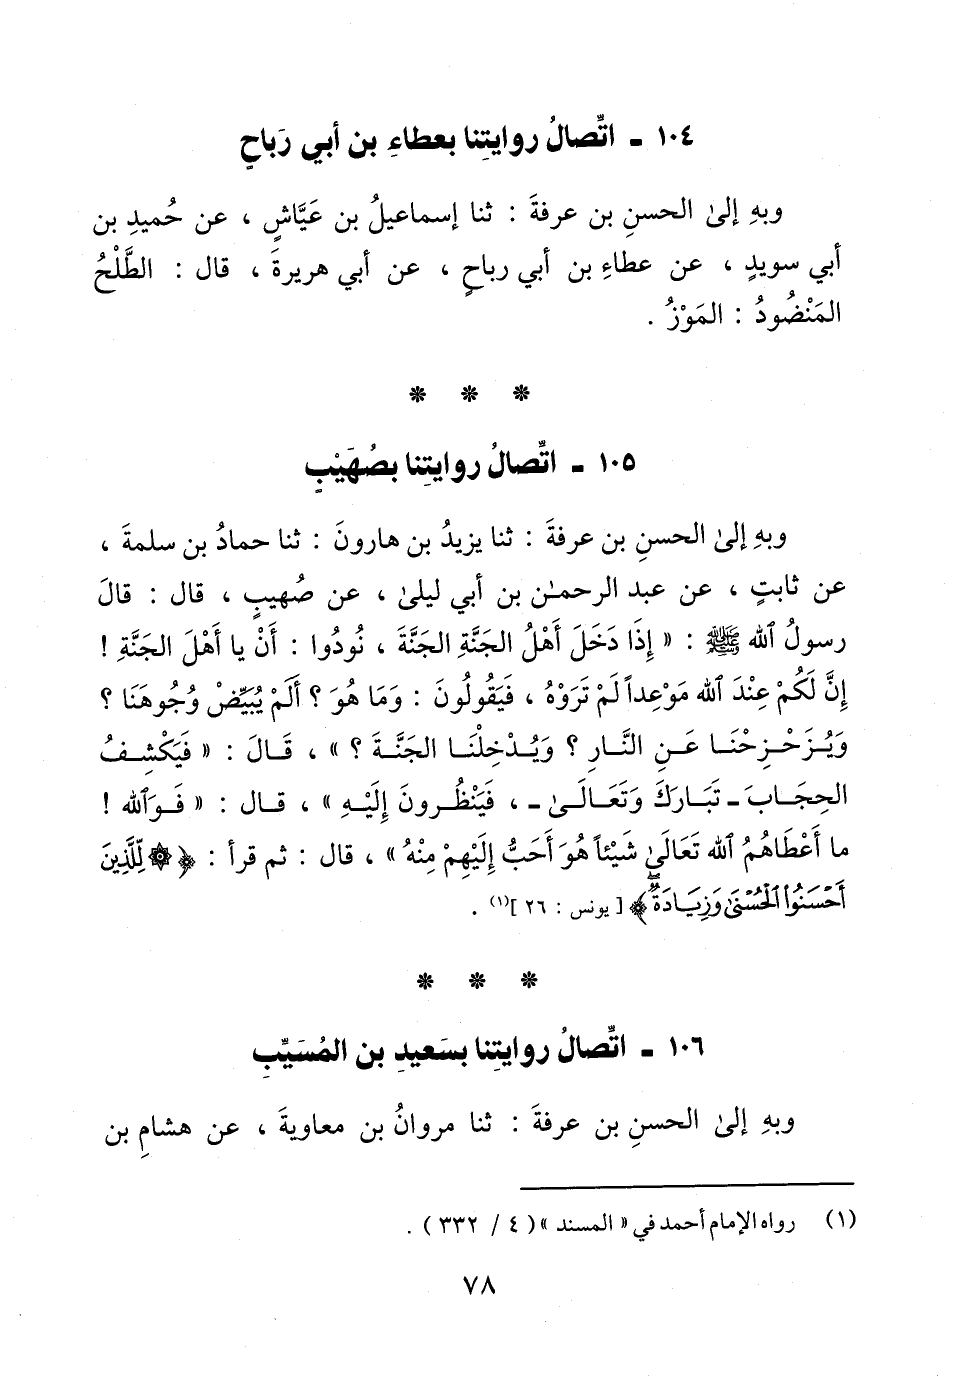 ١٠٤ ـ اتِّصالُ روايتِنا بعطاءِ بن أبي رَباحٍ
وبهِ إلىٰ الحسنِ بن عرفةَ : ثنا إسماعيلُ بن عَيَّاشٍ ، عن حُميدِ بن
أبي سويدٍ ، عن عطاءِ بن أبي رباحٍ ، عن أبي هريرةَ ، قال : الطَّلْحُ
المَنْضُودُ : المَوْزُ .
* * *
١٠٥ ـ اتِّصالُ روايتِنا بصُهَيْبٍ
وبهِ إلىٰ الحسنِ بن عرفةَ : ثنا يزيدُ بن هارونَ : ثنا حمادُ بن سلمةَ ،
عن ثابتٍ ، عن عبد الرحمـٰن بن أبي ليلىٰ ، عن صُهيبٍ ، قال : قالَ
رسولُ ٱلله ﷺ : « إِذَا دَخَلَ أَهْلُ الجَنَّةِ الجَنَّةَ ، نُودُوا : أَنْ يا أَهْلَ الجَنَّةِ !
إِنَّ لَكُمْ عِنْدَ ٱلله مَوْعِداً لَمْ تَرَوْهُ ، فَيَقُولُونَ : وَمَا هُوَ ؟ أَلَمْ يُبَيِّضْ وُجُوهَنَا ؟
وَيُزَحْزِحْنَا عَنِ النَّارِ ؟ وَيُدْخِلْنَا الجَنَّةَ ؟ » ، قَالَ : « فَيَكْشِفُ
الحِجَابَ ـ تَبَارَكَ وَتَعَالَىٰ ـ ، فَيَنْظُرونَ إِلَيْهِ » ، قال : « فَوَٱلله !
ما أَعْطَاهُمُ ٱلله تَعَالَىٰ شَيْئاً هُوَ أَحَبُّ إِلَيْهِمْ مِنْهُ » ، قال : ثم قرأ : ﴿ ۞ لِّلَّذِينَ
أَحْسَنُوا۟ ٱلْحُسْنَىٰ وَزِيَادَةٌۖ ﴾ [ يونس : ٢٦ ]⁽١⁾ .
* * *
١٠٦ ـ اتِّصالُ روايتِنا بسَعيدِ بن المُسَيِّبِ
وبهِ إلىٰ الحسنِ بن عرفةَ : ثنا مروانُ بن معاويةَ ، عن هشامِ بن
(١) رواه الإمام أحمد في « المسند » ( ٤ / ٣٣٢ ) .
٧٨